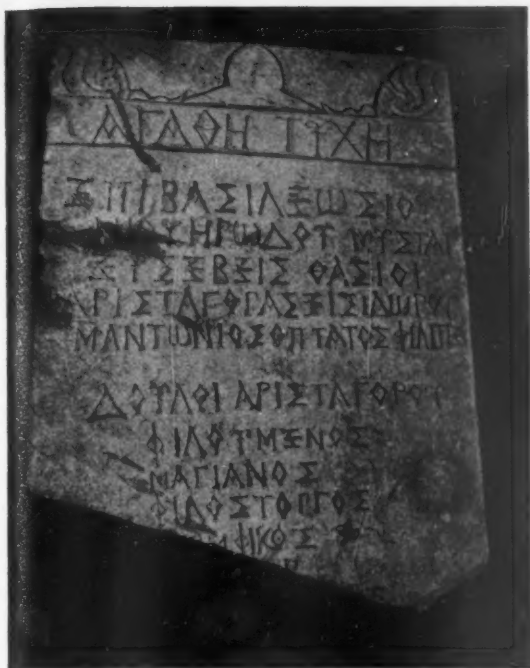 ΑΓΑΘΗ ΤΥΧΗ
ΕΠΙ ΒΑΣΙΛΕΩΣ ΙΟ
ΗΡΩΔΟΥ ΜΥΣΤΑΙ
ΕΥΣΕΒΕΙΣ ΘΑΣΙΟΙ
ΑΡΙΣΤΑΓΟΡΑΣ ΕΙΣΙΔΩΡΟΥ
Μ ΑΝΤΩΝΙΟΣ ΟΠΤΑΤΟΣ
ΔΟΥΛΟΙ ΑΡΙΣΤΑΓΟΡΟΥ
ΦΙΛΟΥΜΕΝΟΣ
ΜΑΓΙΑΝΟΣ
ΦΙΛΟΣΤΟΡΓΟΣ